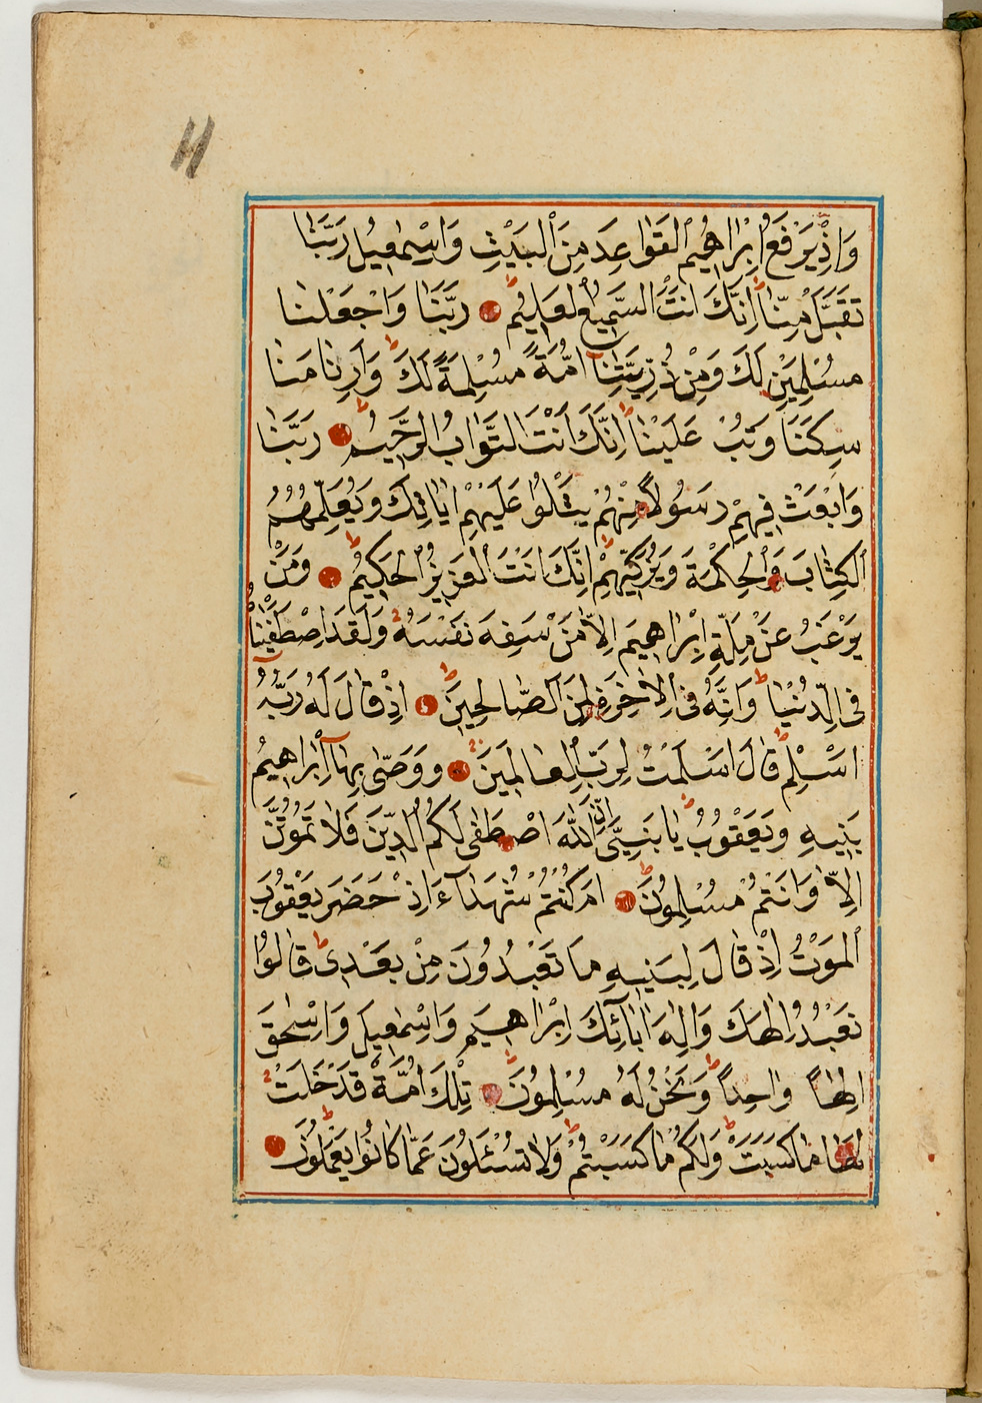 11
وَاِذْ يَرْفَعُ اِبْرٰاهٖيمُ الْقَوٰاعِدَ مِنَ الْبَيْتِ وَاِسْمٰعٖيلُ رَبَّنٰا
تَقَبَّلْ مِنّٰا ط اِنَّكَ اَنْتَ السَّمٖيعُ الْعَلٖيمُ رَبَّنٰا وَاجْعَلْنٰا
مُسْلِمَيْنِ لَكَ وَمِنْ ذُرِّيَّتِنٰا اُمَّةً مُسْلِمَةً لَكَ ط وَاَرِنٰا مَنٰا
سِكَنَا وَتُبْ عَلَيْنٰا ط اِنَّكَ اَنْتَ التَّوّٰابُ الرَّحٖيمُ ط رَبَّنٰا
وَابْعَثْ فٖيهِمْ رَسُولاً مِنْهُمْ يَتْلُوا عَلَيْهِمْ اٰيٰاتِكَ وَيُعَلِّمُهُمُ
الْكِتٰابَ وَالْحِكْمَةَ وَيُزَكّٖيهِمْ ط اِنَّكَ اَنْتَ الْعَزٖيزُ الْحَكٖيمُ ط وَمَنْ
يَرْغَبُ عَنْ مِلَّةِ اِبْرٰاهٖيمَ اِلاّٰ مَنْ سَفِهَ نَفْسَهُ وَلَقَدِ اصْطَفَيْنٰاهُ
فِى الدُّنْيٰا ط وَاِنَّهُ فِى الْاٰخِرَةِ لَمِنَ الصّٰالِحٖينَ ط اِذْ قٰالَ لَهُ رَبُّهُ
اَسْلِمْ ط قٰالَ اَسْلَمْتُ لِرَبِّ الْعٰالَمٖينَ وَوَصّٰى بِهٰا اِبْرٰاهٖيمُ
بَنٖيهِ وَيَعْقُوبُ ط يٰا بَنِىَّ اِنَّ اللّٰهَ اصْطَفٰى لَكُمُ الدّٖينَ فَلاٰ تَمُوتُنَّ
اِلاّٰ وَاَنْتُمْ مُسْلِمُونَ ط اَمْ كُنْتُمْ شُهَدٰاءَ اِذْ حَضَرَ يَعْقُوبَ
الْمَوْتُ اِذْ قٰالَ لِبَنٖيهِ مٰا تَعْبُدُونَ مِنْ بَعْدٖى ط قٰالُوا
نَعْبُدُ اِلٰهَكَ وَاِلٰهَ اٰبٰائِكَ اِبْرٰاهٖيمَ وَاِسْمٰعٖيلَ وَاِسْحٰقَ
اِلٰهاً وٰاحِداً ط وَنَحْنُ لَهُ مُسْلِمُونَ ط تِلْكَ اُمَّةٌ قَدْ خَلَتْ
لَهٰا مٰا كَسَبَتْ ط وَلَكُمْ مٰا كَسَبْتُمْ ط وَلاٰ تُسْئَلُونَ عَمّٰا كٰانُوا يَعْمَلُونَ ط